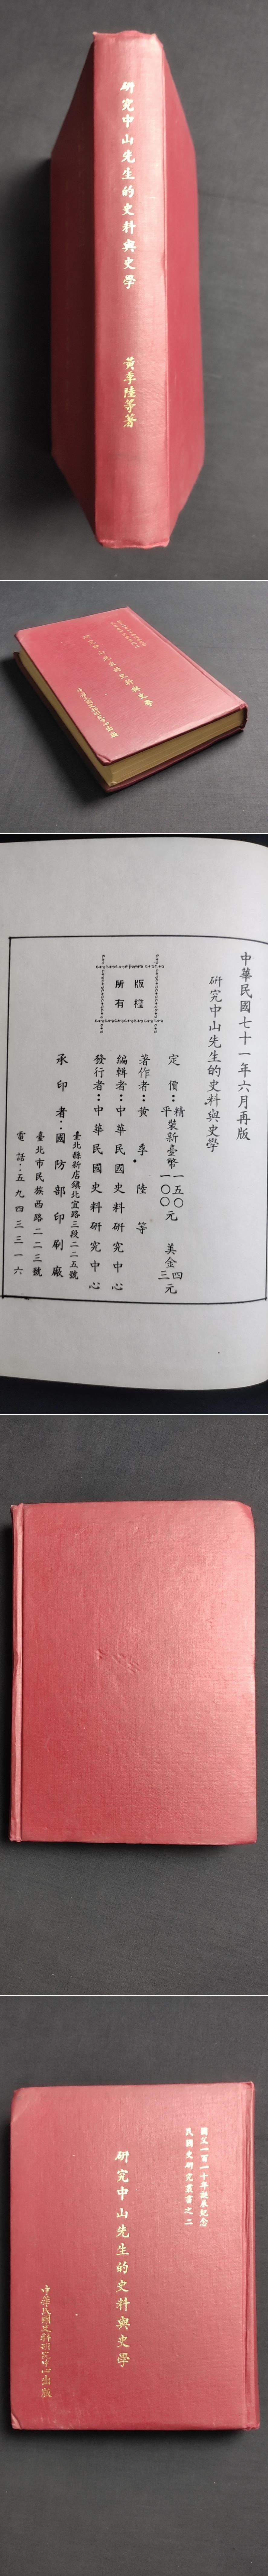 研究中山先生的史料與史學
黃季陸等著
研究中山先生的史料與史學
中華民國史料研究中心出版
中華民國七十一年六月再版
研究中山先生的史料與史學
定價：精裝新臺幣一五〇元 美金四元
平裝新臺幣一〇〇元 美金三元
著作者：黃季陸等
編輯者：中華民國史料研究中心
發行者：中華民國史料研究中心
臺北縣新店鎮北宜路三段二二五號
承印者：國防部印刷廠
臺北市民族西路二二三號
電話：五九四三三一六
版權
所有
國父一百一十年誕辰紀念
民國史研究叢書之二
研究中山先生的史料與史學
中華民國史料研究中心出版